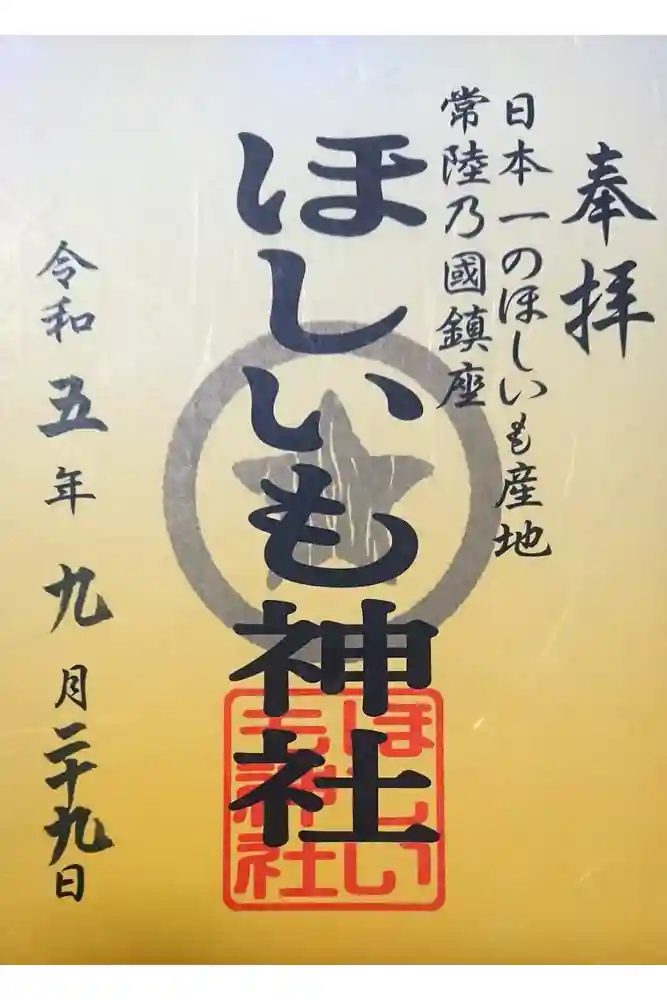 奉拝
日本一のほしいも産地
常陸乃國鎮座
ほしいも神社
ほしい
も神社
令和五年九月二十九日